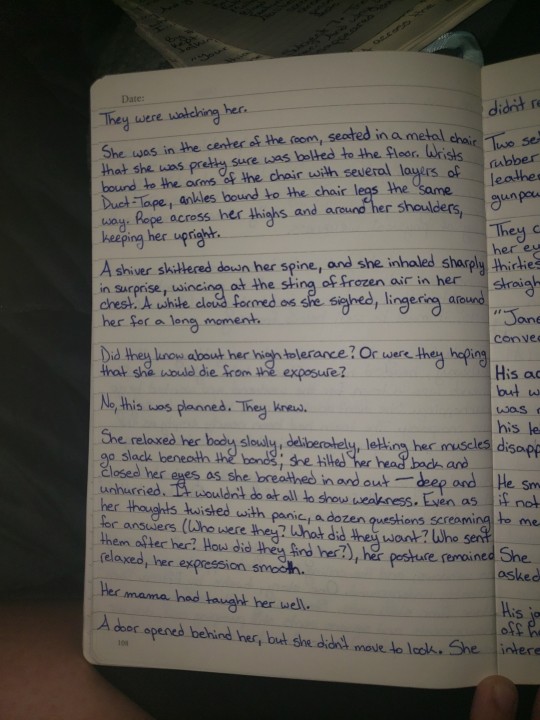 Date:
They were watching her.
She was in the center of the room, seated in a metal chair
that she was pretty sure was bolted to the floor. Wrists
bound to the arms of the chair with several layers of
Duct-Tape, ankles bound to the chair legs the same
way. Rope across her thighs and around her shoulders,
keeping her upright.
A shiver skittered down her spine, and she inhaled sharply
in surprise, wincing at the sting of frozen air in her
chest. A white cloud formed as she sighed, lingering around
her for a long moment.
Did they know about her high tolerance? Or were they hoping
that she would die from the exposure?
No, this was planned. They knew.
She relaxed her body slowly, deliberately, letting her muscles
go slack beneath the bonds; she tilted her head back and
closed her eyes as she breathed in and out — deep and
unhurried. It wouldn't do at all to show weakness. Even as
her thoughts twisted with panic, a dozen questions screaming
for answers (Who were they? What did they want? Who sent
them after her? How did they find her?), her posture remained
relaxed, her expression smooth.
Her mama had taught her well.
A door opened behind her, but she didn't move to look. She
108
didn't re
Two se
rubber
leather
gunpow
They c
her ey
thirties
straigh
"Jane
conver
His ac
but w
was r
his le
disapp
He sm
if not
to me
She
asked
His ja
off h
intere